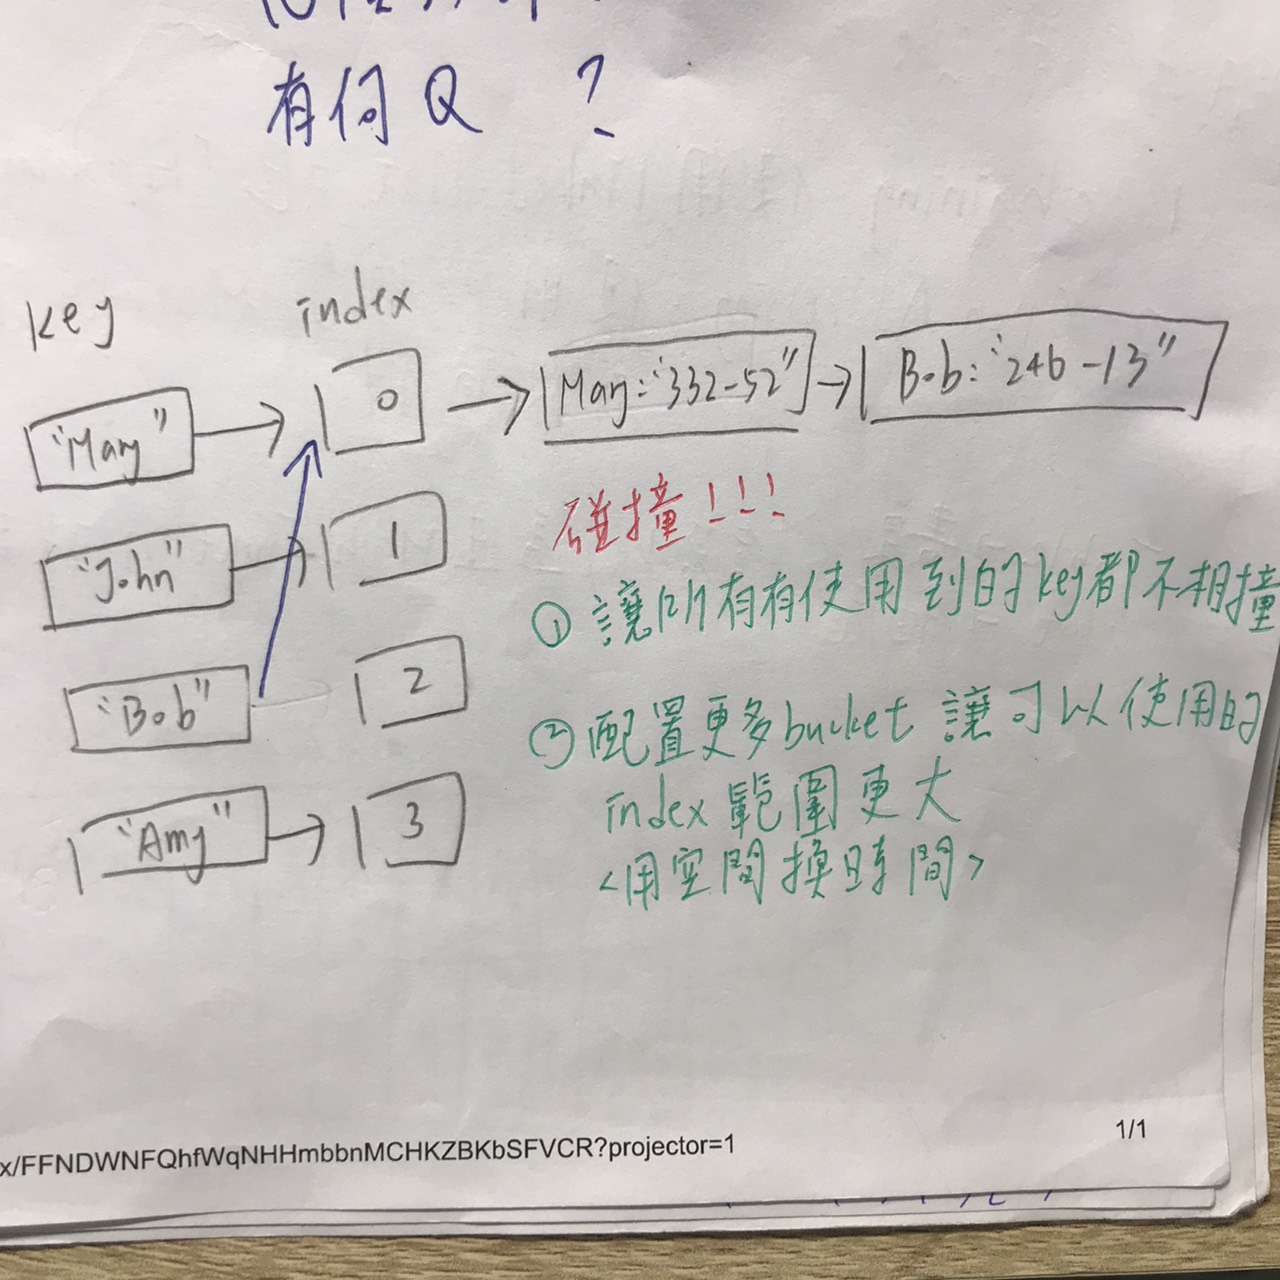 有何Q ?
key index
"Mary" 0 Mary: "332-52" Bob: "246-13"
碰撞!!!
"John" 1
① 讓所有有使用到的key都不相撞
"Bob" 2
② 配置更多bucket 讓可以使用的
index 範圍更大
"Amy" 3
<用空間換時間>
x/FFNDWNFQhfWqNHHmbbnMCHKZBKbSFVCR?projector=1
1/1